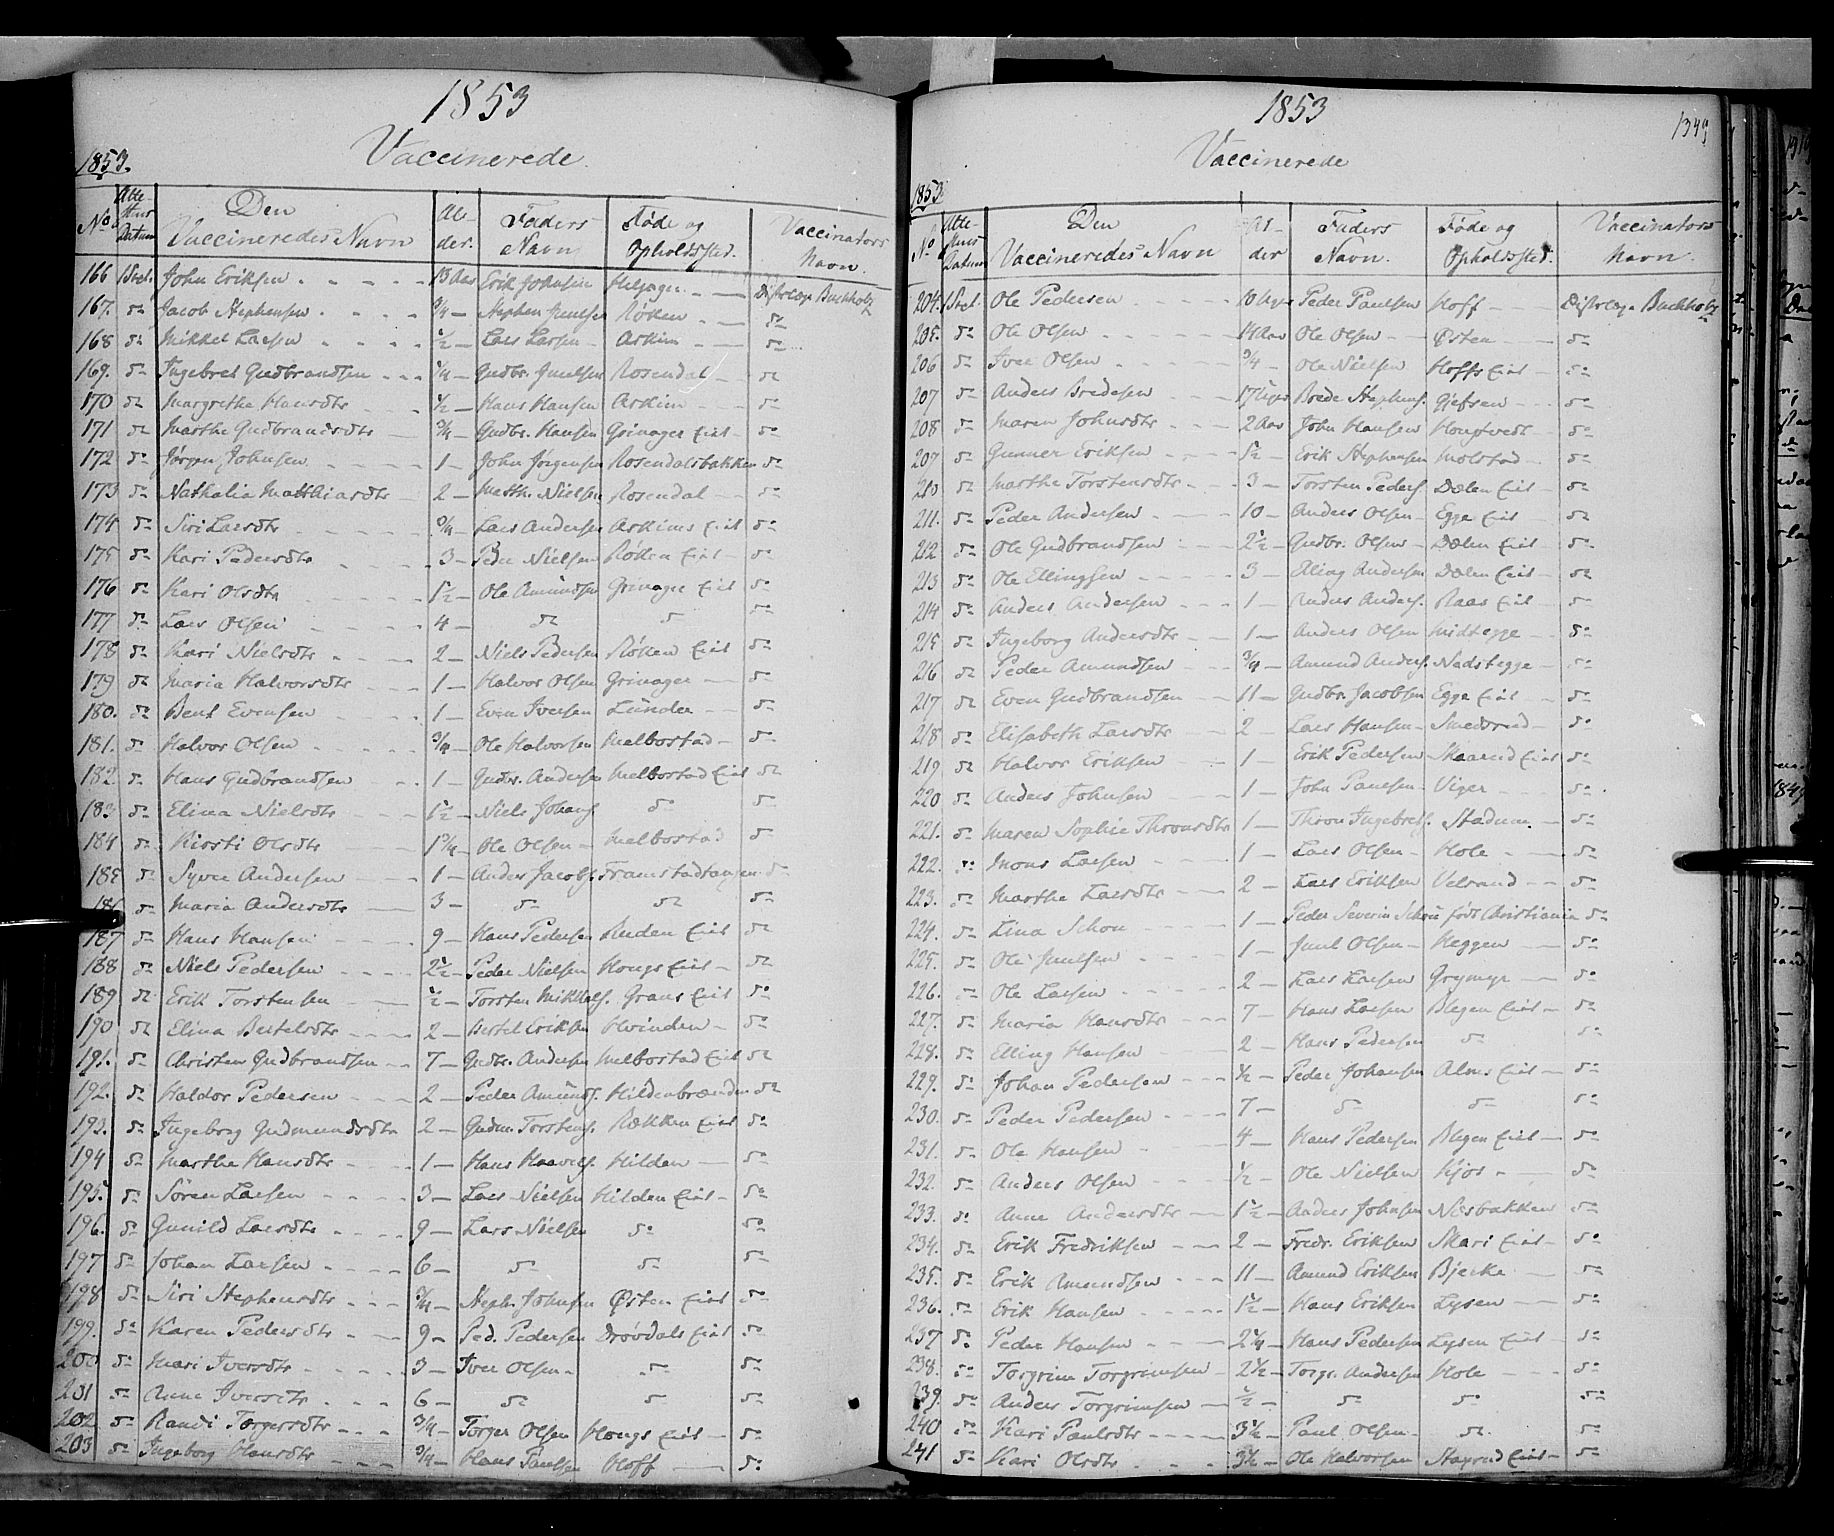 1853
Vaccinerede.
1853.
No Attestens Datum Den Vaccineredes Navn Alder. Faders Navn Føde og Opholdssted. Vaccinators Navn.
166 John Eriksen 13 Aar Erik Johnsen Helgager Distrlæge Buchholtz
167. do Jacob Stephensen 3/4 Stephen Juulsen Røken do
168 do Mikkel Larsen 1/2 Lars Larsen Askim do
169. do Ingebret Gudbrandsen 1/4 Gudbr. Juulsen Rosendal do
170 do Margrethe Hansdtr 1/2 Hans Hansen Askim do
171 do Marthe Gudbrandsdtr 3/4 Gudbr. Hansen Grinager Eiet do
172 do Jørgen Johnsen 1 John Jørgensen Rosendalsbakken do
173 do Nathalia Matthiasdtr 2 Matth. Nielsen Rosendal do
174 do Siri Larsdtr 3/4 Lars Andersen Askims Eiet do
175 do Kari Pedersdtr 3 Peder Nielsen Røken Eiet do
176 do Kari Olsdtr 1 1/2 Ole Amundsen Grinager Eiet do
177 do Lars Olsen 4 do do do
178 do Kari Nielsdtr 2 Niels Pedersen Røken Eiet do
179 do Maria Halvorsdtr 1 Halvor Olsen Grinager do
180. do Bent Evensen 1 Even Iversen Lunder do
181. do Halvor Olsen 3/4 Ole Halvorsen Melbostad do
182 do Hans Gudbrandsen 1 Gudbr. Andersen Melbostad Eiet do
183 do Elina Nielsdtr 1 1/2 Niels Johans. do do
184 do Kirsti Olsdtr 1 3/4 Ole Olsen Melbostad do
185 do Syver Andersen 1 Anders Jacobs. Framstadtangen do
186 do Maria Andersdtr 3 do do do
187 do Hans Hansen 9 Hans Pedersen Ruden Eiet do
188 do Niels Pedersen 2 1/2 Peder Nielsen Hougs Eiet do
189 do Erik Torstensen 1/2 Torsten Mikkels. Grans Eiet do
190 do Elina Bertelsdtr 2 Bertel Eriksen Hvinden do
191. do Christen Gudbrandsen 7 Gudbr. Andersen Melbostad Eiet do
192. do Haldor Pedersen 2 Peder Amunds. Hildenbrænden do
193. do Ingeborg Gudmundsdtr 2 Gudm. Torstens. Rækken Eiet do
194 do Marthe Hansdtr 1 Hans Haavels. Hilden do
195. do Søren Larsen 3 Lars Nielsen Hilden Eiet do
196. do Gunild Larsdtr 9 Lars Nielsen do do
197 do Johan Larsen 6 do do do
198 do Siri Stephensdtr 3/4 Steph. Johnsen Østen Eiet do
199. do Karen Pedersdtr 9 Ped. Pedersen Drøvdals Eiet do
200 do Mari Iversdtr 3 Iver Olsen do do
201 do Anne Iversdtr 6 do do do
202 do Randi Torgersdtr 3/4 Torger Olsen Hougs Eiet do
203 do Ingeborg Hansdtr 3/4 Hans Paulsen Hoff do
1853
Vaccinerede
1853
No Attestens Datum Den Vaccineredes Navn Alder Faders Navn. Føde og Opholdssted. Vaccinators Navn.
204. Ole Pedersen 10 Uger Peder Paulsen Hoff Distrlæge Buchholtz
205. do Ole Olsen 14 Aar Ole Olsen Østen do
206 do Iver Olsen 3/4 Ole Nielsen Hoffs Eiet do
207 do Anders Bredesen 17 Uger Brede Stephens. Gjefsen do
208 do Maren Johnsdtr 2 Aar John Hansen Hougtvedt do
207 do Gunner Eriksen 5 1/2 Erik Stephensen Molstad do
210 do Marthe Torstensdtr 3 Torsten Peders. Dælen Eiet do
211. do Peder Andersen 10 Anders Olsen Egge Eiet do
212 do Ole Gudbrandsen 2 1/2 Gudbr. Olsen Dælen Eiet do
213 do Ole Ellingsen 3 Elling Andersen Dælen Eiet do
214 do Anders Andersen 1 Anders Anders. Raas Eiet do
215 do Ingeborg Andersdtr 1 Anders Olsen Midtegge do
216 do Peder Amundsen 3/4 Amund Anders. Nedstegge do
217 do Even Gudbrandsen 11 Gudbr. Jacobsen Egge Eiet do
218 do Elisabeth Larsdtr 2 Lars Hansen Smedsrud do
219 do Halvor Eriksen 1 Erik Pedersen Skaarud Eiet do
220 do Anders Johnsen 1 John Paulsen Viger do
221. do Maren Sophie Thronsdtr 1 Thron Ingebrets. Stadum do
222. do Mons Larsen 1 Lars Olsen Hole do
223. do Marthe Larsdtr 2 Lars Eriksen Velsand do
224. do Lina Schou 1 Peder Severin Schou født Christiania do
225. do Ole Juulsen 1 Juul Olsen Heggen do
226. do Ole Larsen 2 Lars Larsen Grymyr do
227. do Maria Hansdtr 7 Hans Larsen Blegen Eiet do
228. do Elling Hansen 2 Hans Pedersen do do
229. do Johan Pedersen 1/2 Peder Johansen Alms Eiet do
230. do Peder Pedersen 7 do do do
231. do Ole Hansen 4 Hans Pedersen Blegen Eiet do
232. do Anders Olsen 1/2 Ole Nielsen Kjos do
233. do Anne Andersdtr 1 1/2 Anders Johnsen Næsbakken do
234. do Erik Fredriksen 2 Fredr. Eriksen Skari Eiet do
235. do Erik Amundsen 11 Amund Eriksen Bjerke do
236. do Erik Hansen 1 1/2 Hans Eriksen Lysen do
237 do Peder Hansen 2 1/4 Hans Pedersen Lysen Eiet do
238. do Torgrim Torgrimsen 2 1/2 Torgr. Andersen Hole do
239. do Anders Torgrimsen 1/2 do do do
240 do Kari Paulsdtr 3 1/2 Paul Olsen do do
241 do Kari Olsdtr 3 1/2 Ole Halvorsen Staxrud Eiet do